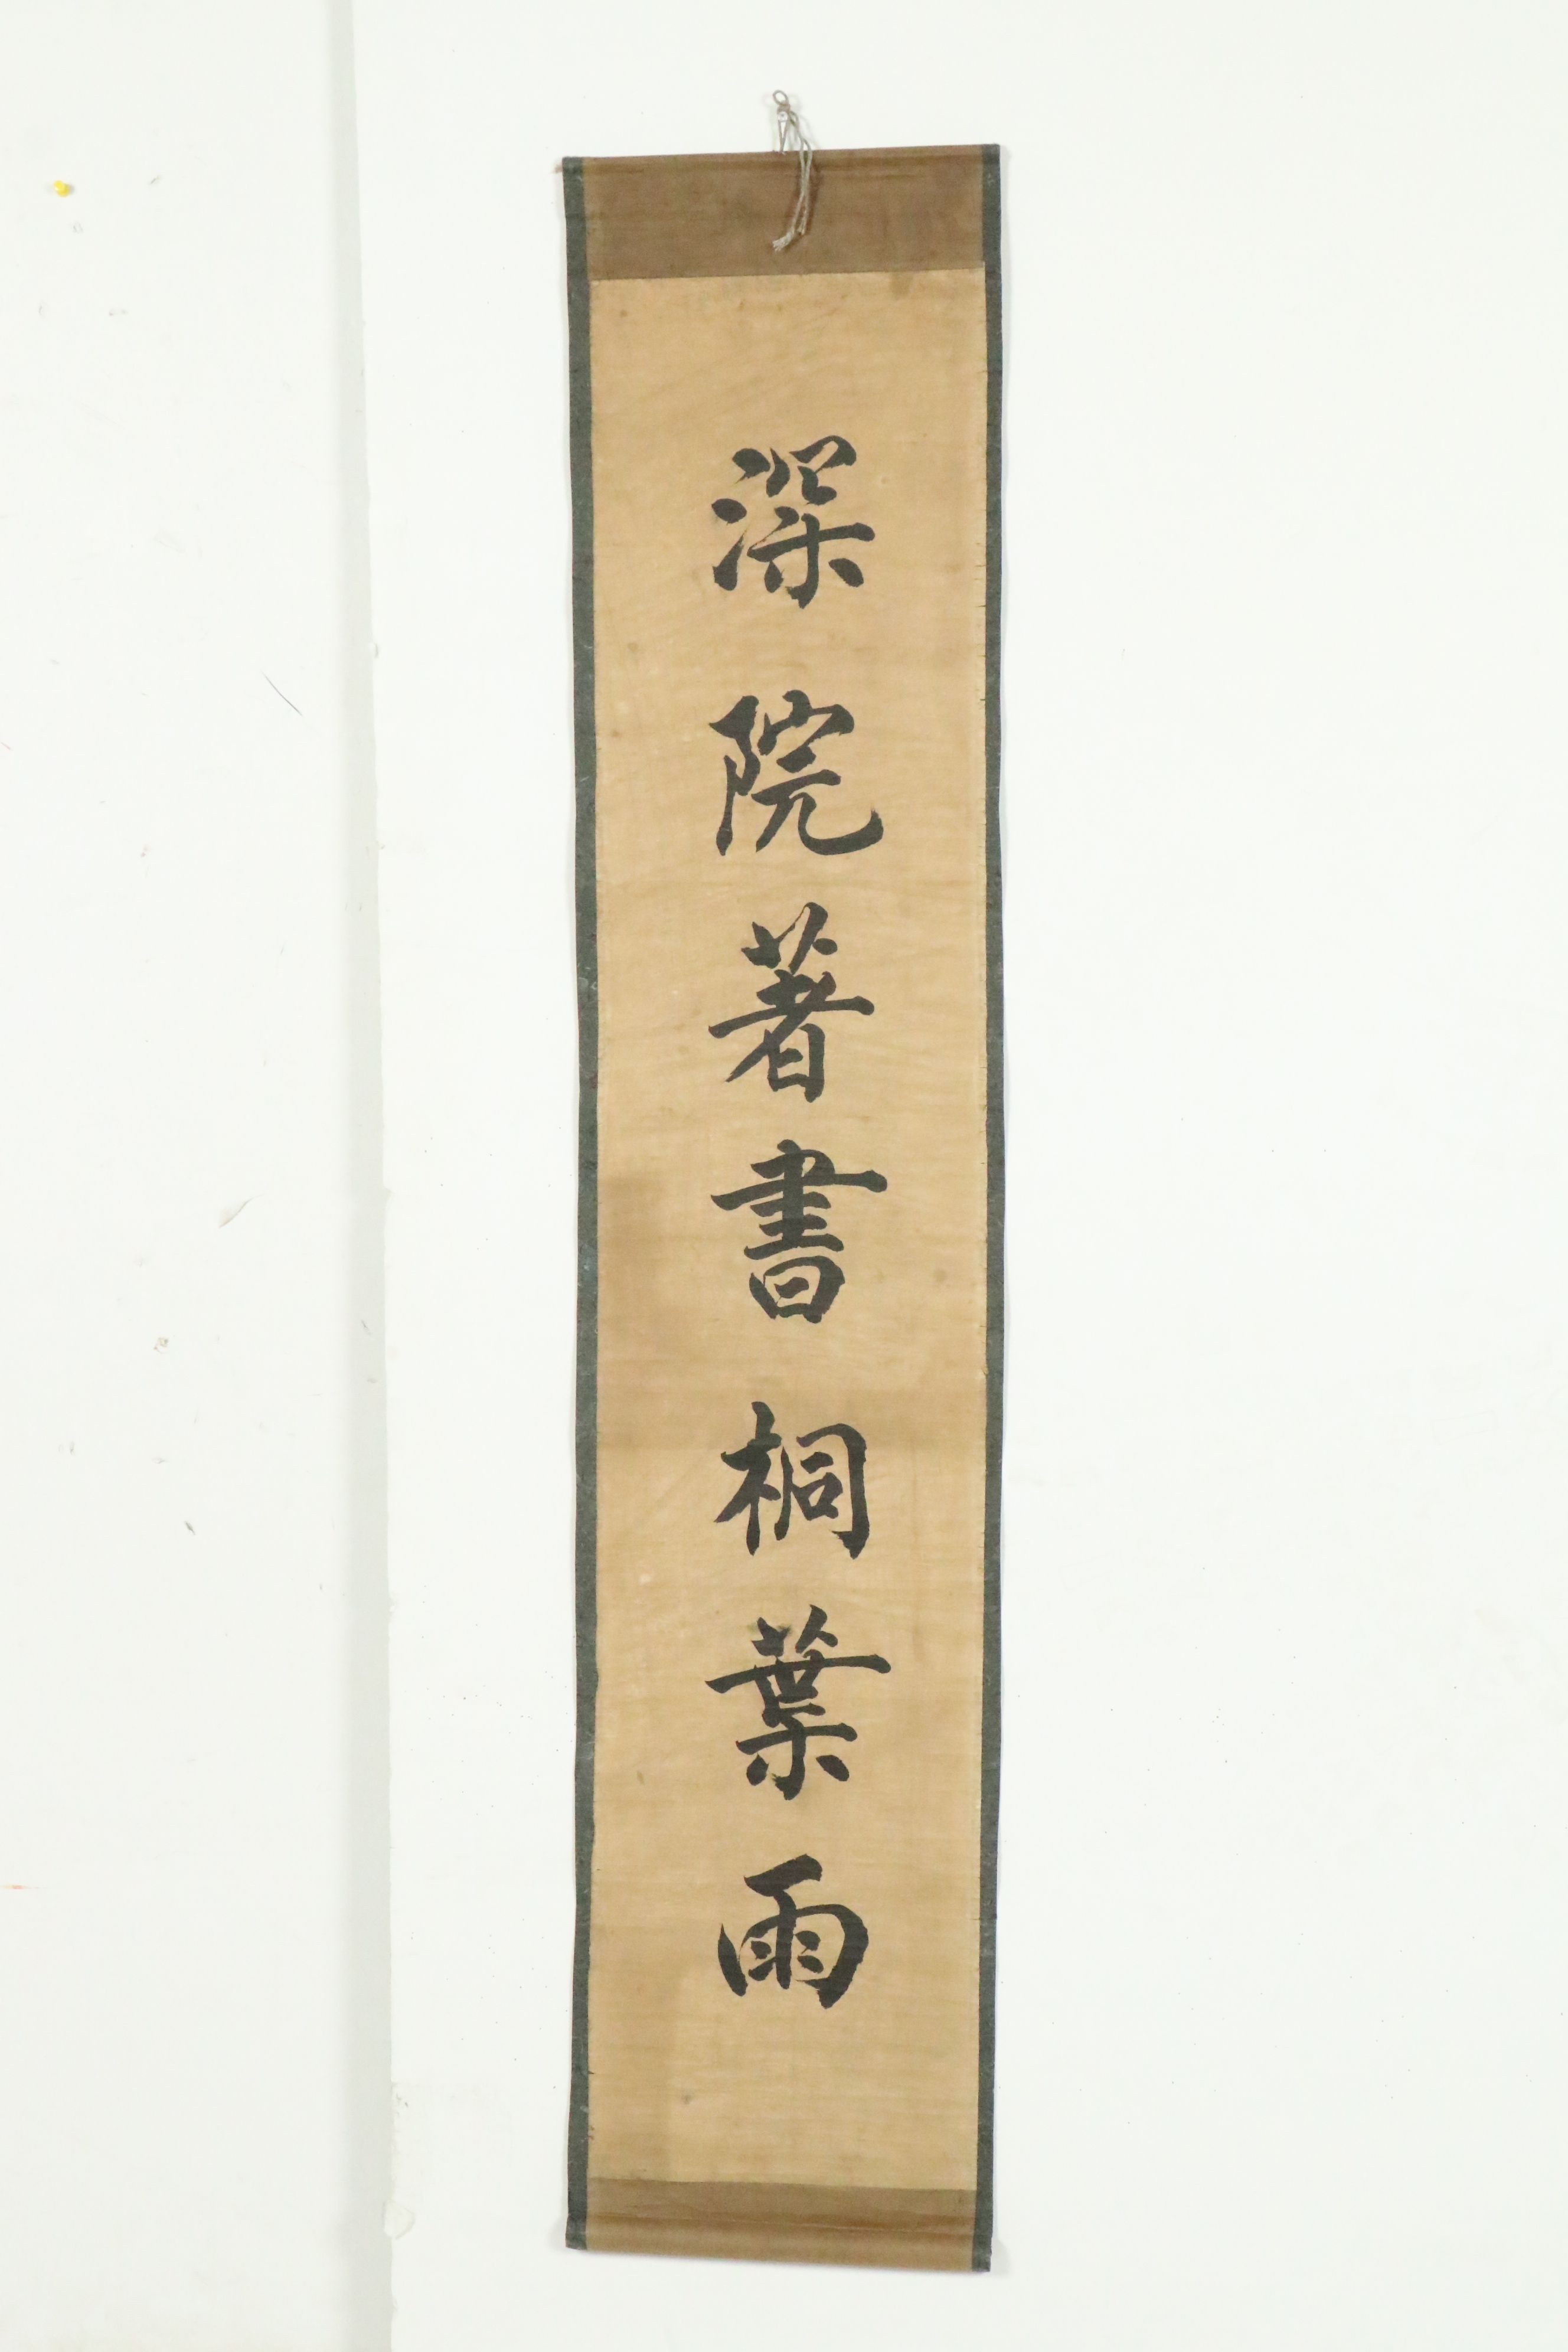 深院著書桐葉雨